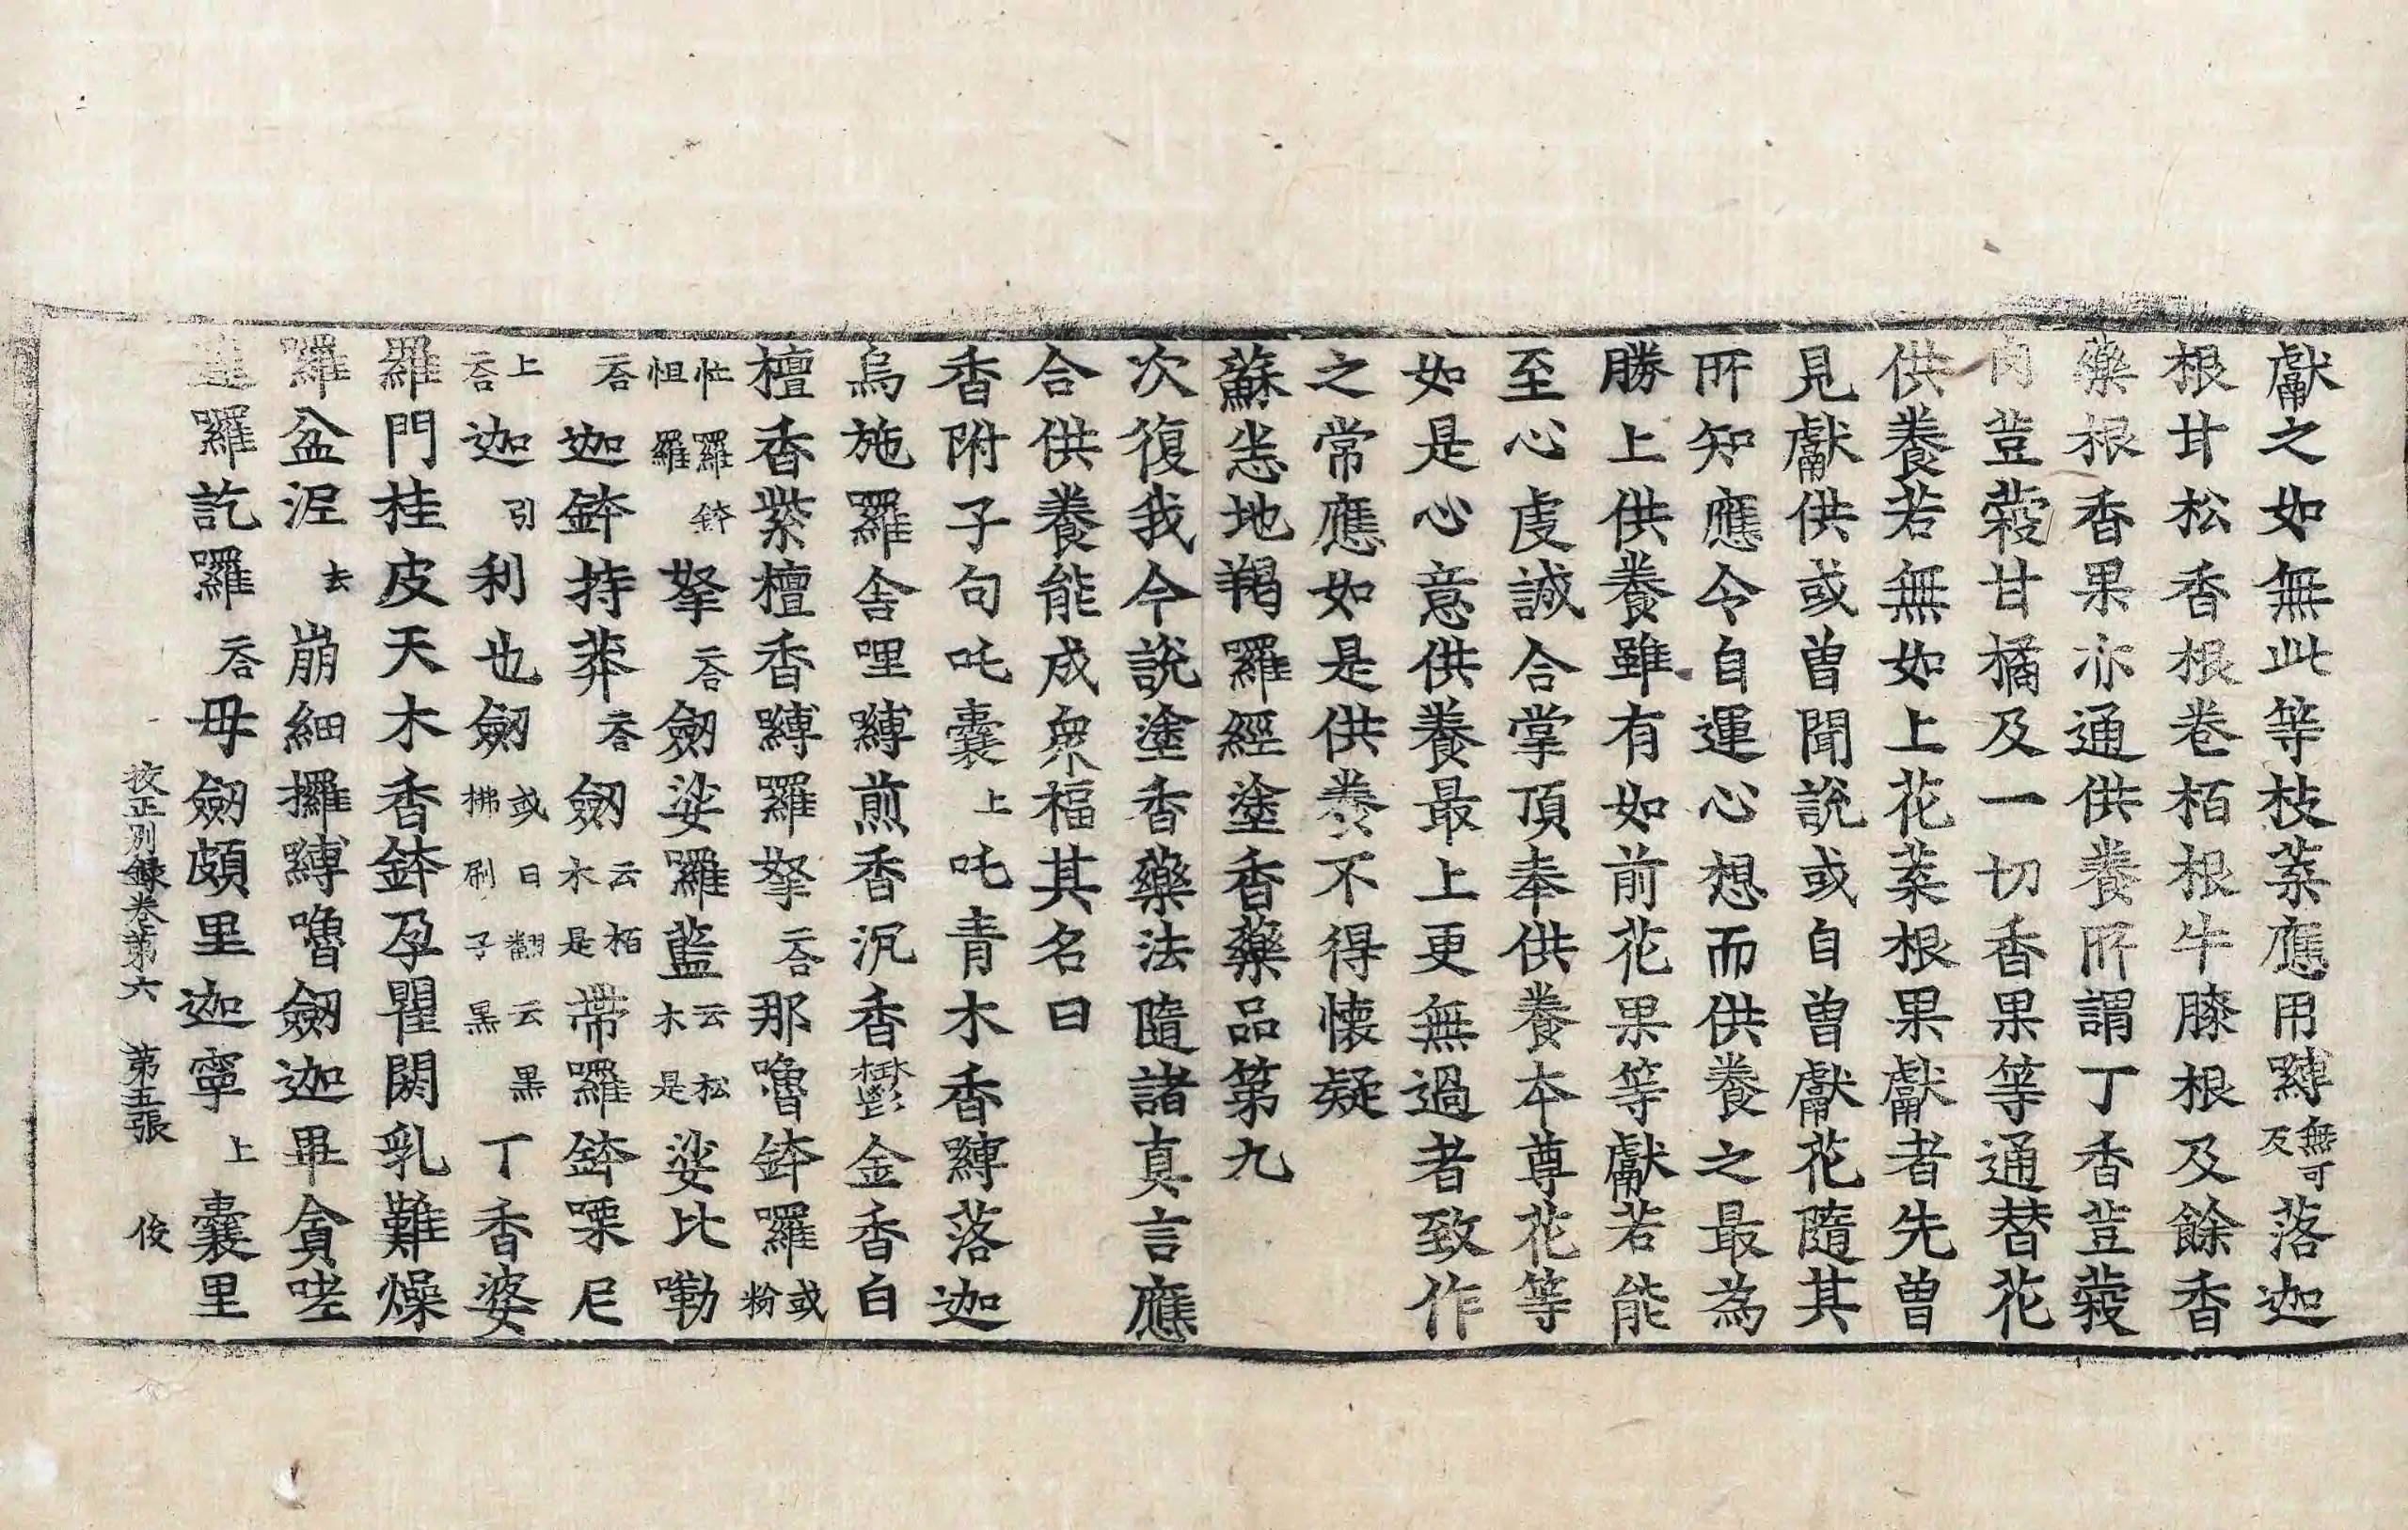 獻之如無此等枝葉應用嚩無可反落迦
根甘松香根卷栢根牛膝根及餘香
藥根香果亦通供養所謂丁香荳蔲
肉荳蔲甘橘及一切香果等通替花
供養若無如上花葉根果獻者先曽
見獻供或曽聞說或自曽獻花隨其
所知應令自運心想而供養之最為
勝上供養雖有如前花果等獻若能
至心虔誠合掌頂奉供養本尊花等
如是心意供養最上更無過者致作
之常應如是供養不得懷疑
蘇悉地羯羅經塗香藥品第九
次復我今說塗香藥法隨諸真言應
合供養能成衆福其名曰
香附子句吒囊上吒青木香嚩落迦
烏施羅舎哩嚩煎香汎香欝金香白
檀香紫檀香嚩羅拏二合那嚕鉢羅或粉
忙羅鉢怛羅拏二合劒娑羅藍云松木是娑比嘞
二合迦鉢持莽二合劒云栢木是帶囉鉢㗚尼
上二合迦引利也劒或曰翻云黒拂刷子黒丁香婆
羅門桂皮天木香鉢孕瞿閼乳難燥
囉盆泥去崩細攞嚩嚕劒迦畢貪嗟
囉訖囉二合毋劒頗里迦寧上囊里
挍正別錄卷第六　第五張　俊